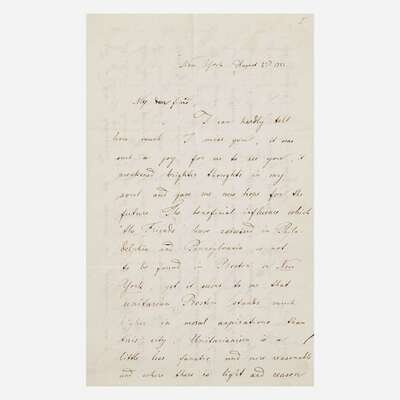 New York August
My dear friend
I can hardly tell
how much I miss you! it was
such a joy for me to see you, it
awakened brighter thoughts in my
soul and gave me new hope for the
future. The beneficial influence which
"the Friends" have exercised in Phila-
delphia and Pennsylvania is not
to be found in Boston or New
York, yet it seems to me that
unitarian Boston stands much
higher in moral aspirations than
this city. Unitarianism is a
little less fanatic and more reasonable
and where there is light and reason